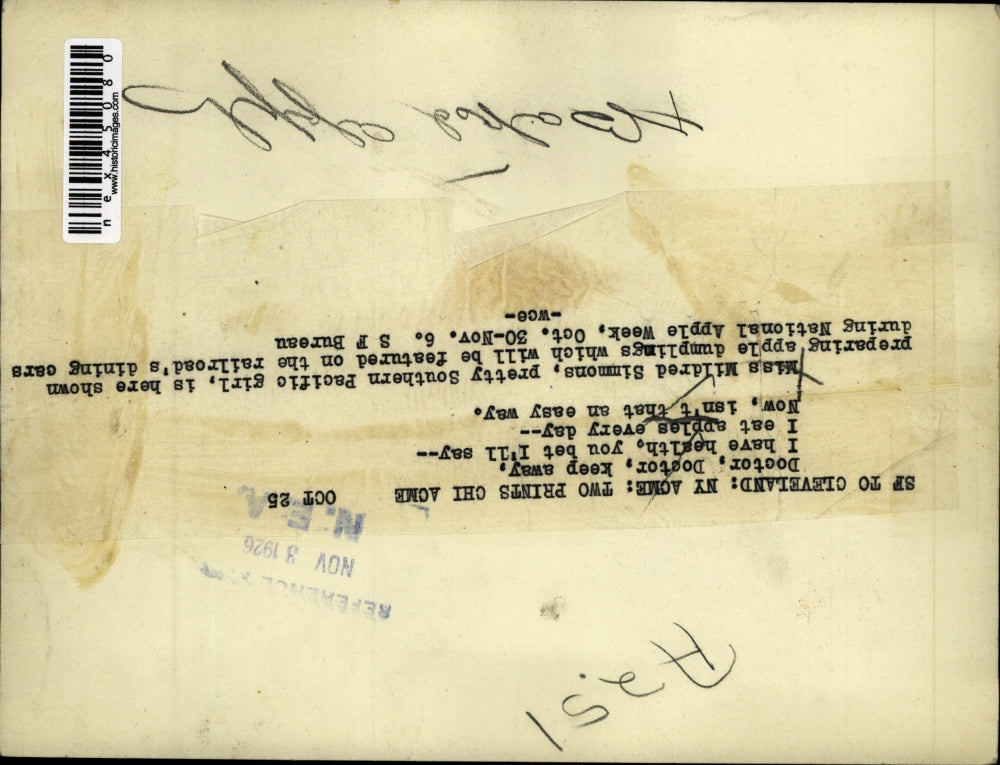 A251
REFERENCE
NOV 3 1926
N.E.A.
SF TO CLEVELAND: NY ACME: TWO PRINTS CHI ACME OCT 25
Doctor, Doctor, keep away,
I have health, you bet I'll say--
I eat apples every day--
Now, isn't that an easy way.
Miss Mildred Simmons, pretty Southern Pacific girl, is here shown
preparing apple dumplings which will be featured on the railroad's dining cars
during National Apple Week, Oct. 30-Nov. 6. S F Bureau
-wce-
nex445080
www.historicimages.com